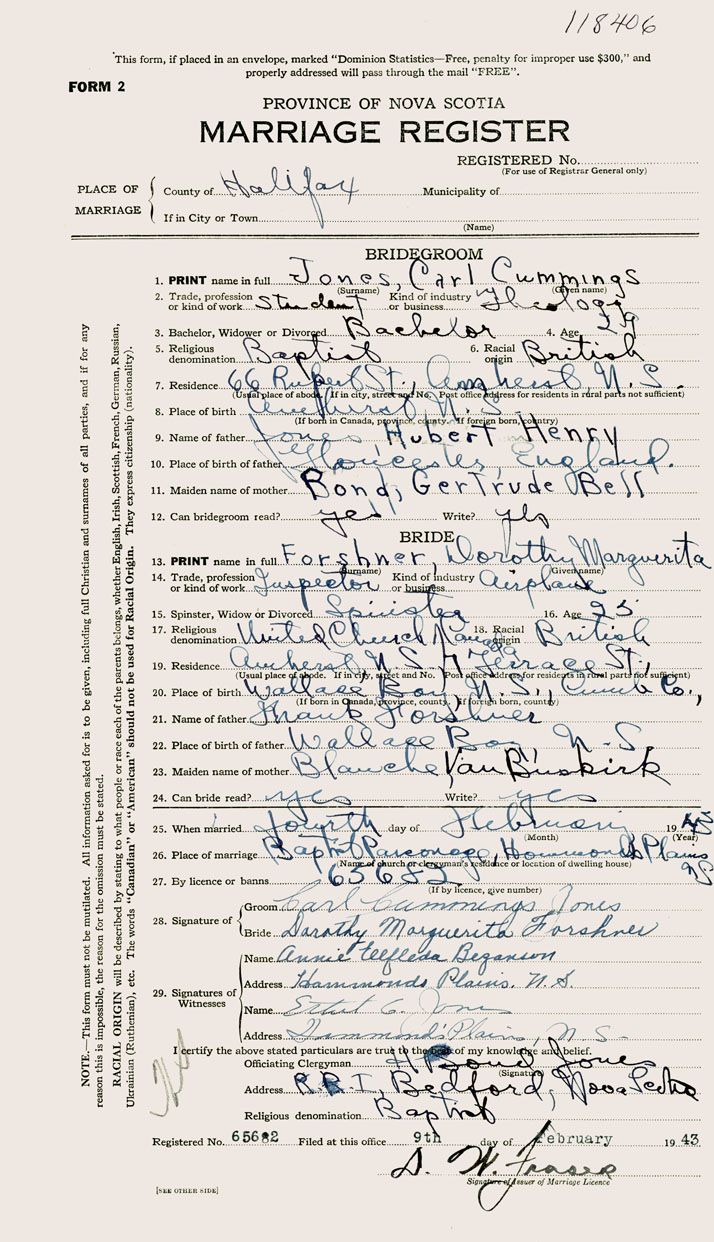 118406
This form, if placed in an envelope, marked "Dominion Statistics—Free, penalty for improper use $300," and
properly addressed will pass through the mail "FREE".
FORM 2
PROVINCE OF NOVA SCOTIA
MARRIAGE REGISTER
REGISTERED No.
(For use of Registrar General only)
PLACE OF MARRIAGE
County of Halifax Municipality of
If in City or Town
(Name)
BRIDEGROOM
1. PRINT name in full Jones, Carl Cummings
(Surname) (Given name)
2. Trade, profession or kind of work Student Kind of industry or business Theology
3. Bachelor, Widower or Divorced Bachelor 4. Age 29
5. Religious denomination Baptist 6. Racial origin British
7. Residence 66 Rupert St., Amherst, N.S.
(Usual place of abode. If in city, street and No. Post office address for residents in rural parts not sufficient)
8. Place of birth Amherst, N.S.
(If born in Canada, province, county. If foreign born, country)
9. Name of father Jones, Hubert Henry
10. Place of birth of father Gloucester, England.
11. Maiden name of mother Bond, Gertrude Bell
12. Can bridegroom read? yes Write? yes
BRIDE
13. PRINT name in full Forshner, Dorothy Marguerita
(Surname) (Given name)
14. Trade, profession or kind of work Inspector Kind of industry or business Airplane
15. Spinster, Widow or Divorced Spinster 16. Age 25
17. Religious denomination United Church Canada 18. Racial origin British
19. Residence Amherst N.S. 7 Terrace St.,
(Usual place of abode. If in city, street and No. Post office address for residents in rural parts not sufficient)
20. Place of birth Wallace Bay, N.S., Cumb Co.,
(If born in Canada, province, county. If foreign born, country)
21. Name of father Frank Forshner
22. Place of birth of father Wallace Bay, N.S.
23. Maiden name of mother Blanche Van Buskirk
24. Can bride read? yes Write? yes
25. When married fourth day of February 19 43
(Month) (Year)
26. Place of marriage Baptist Parsonage, Hammonds Plains NS
(Name of church or clergyman's residence or location of dwelling house)
27. By licence or banns 65682
(If by licence, give number)
28. Signature of
Groom Carl Cummings Jones
Bride Dorothy Marguerita Forshner
29. Signatures of Witnesses
Name Annie Elfleda Bezanson
Address Hammonds Plains. N.S.
Name Ethel C. Jones
Address Hammond's Plains, N.S.
I certify the above stated particulars are true to the best of my knowledge and belief.
Officiating Clergyman H Bond Jones
(Signature)
Address R.R.1, Bedford, Nova Scotia
Religious denomination Baptist
Registered No. 65682 Filed at this office 9th day of February 19 43
S. W. Fraser
Signature of Issuer of Marriage Licence
[SEE OTHER SIDE]
NOTE.—This form must not be mutilated. All information asked for is to be given, including full Christian and surnames of all parties, and if for any
reason this is impossible, the reason for the omission must be stated.
RACIAL ORIGIN will be described by stating to what people or race each of the parents belongs, whether English, Irish, Scottish, French, German, Russian,
Ukrainian (Ruthenian), etc. The words "Canadian" or "American" should not be used for Racial Origin. They express citizenship (nationality).